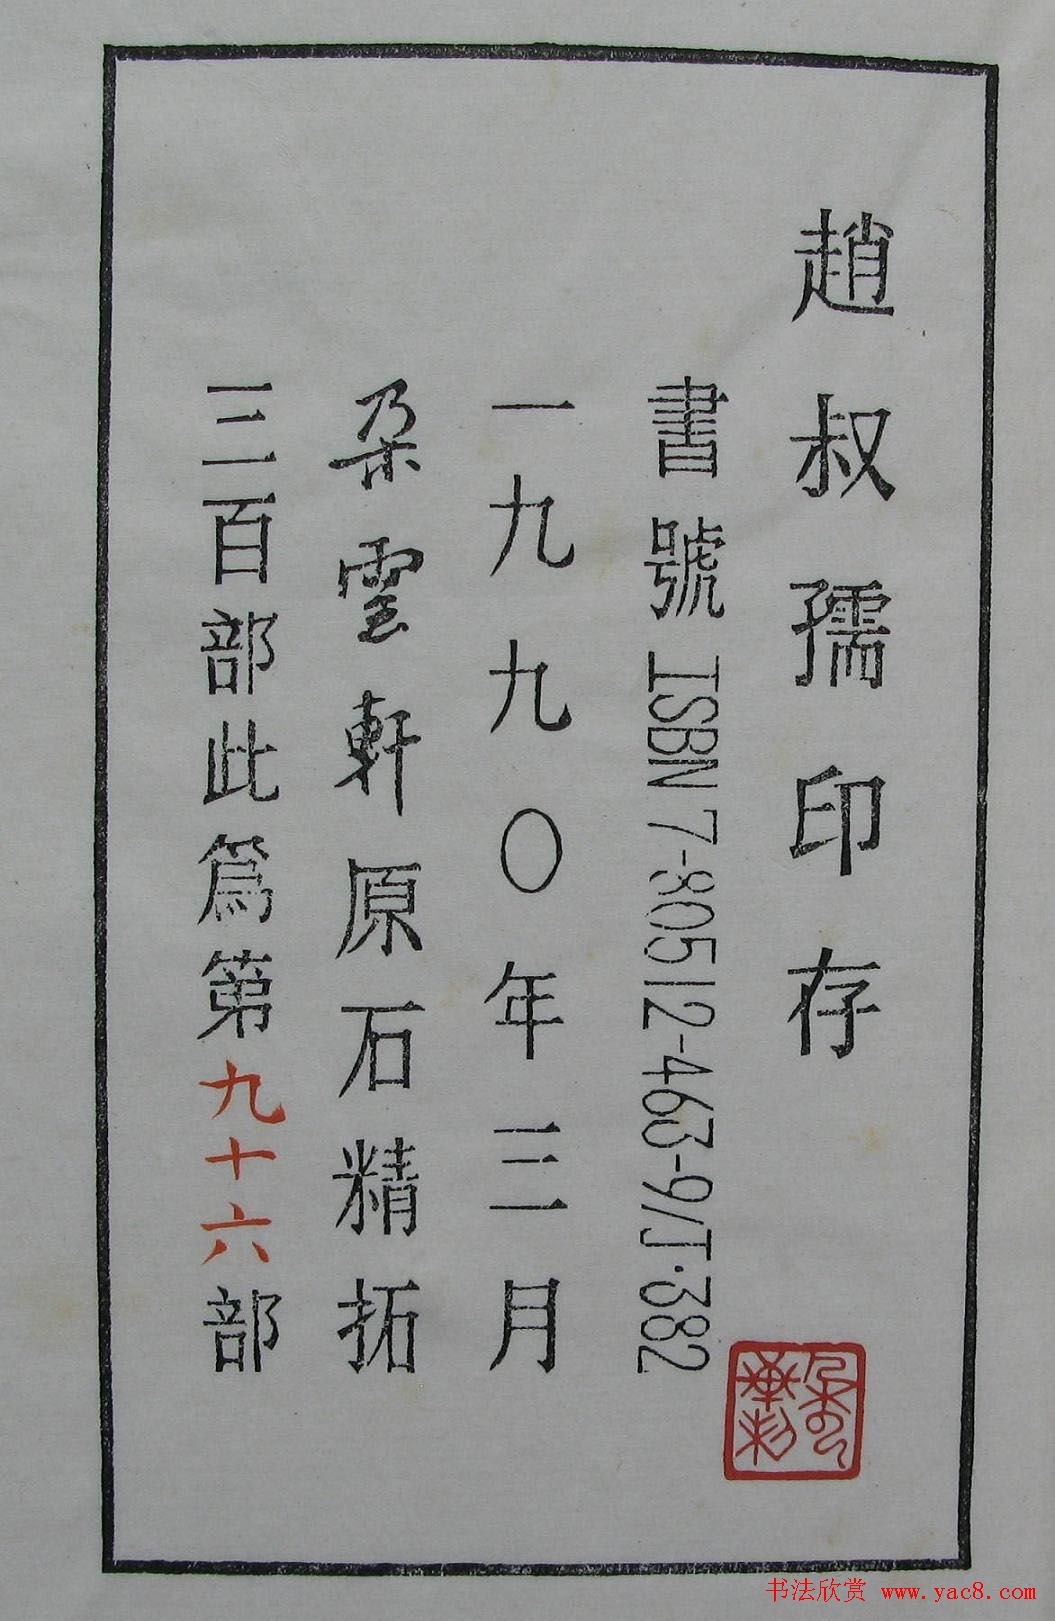 趙叔孺印存
書號 ISBN 7-80512-463-9/J·382
一九九〇年三月
朵雲軒原石精拓
三百部此爲第九十六部
书法欣赏 www.yac8.com